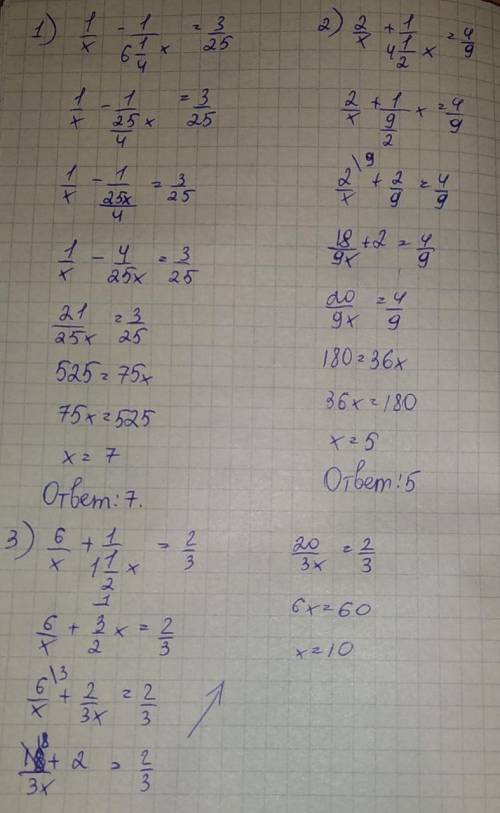 1) 1/x - 1/(6 1/4 x) = 3/25
1/x - 1/(25/4 x) = 3/25
1/x - 1/(25x/4) = 3/25
1/x - 4/25x = 3/25
21/25x = 3/25
525 = 75x
75x = 525
x = 7
Ответ: 7.
2) 2/x + 1/(4 1/2 x) = 4/9
2/x + 1/(9/2) x = 4/9
2/x \9 + 2/9 = 4/9
18/9x + 2 = 4/9
20/9x = 4/9
180 = 36x
36x = 180
x = 5
Ответ: 5
3) 6/x + 1/(1 1/2 x) = 2/3
6/x + 1/(3/2) x = 2/3
6/x \3 + 2/3x = 2/3
18/3x + 2 = 2/3
20/3x = 2/3
6x = 60
x = 10